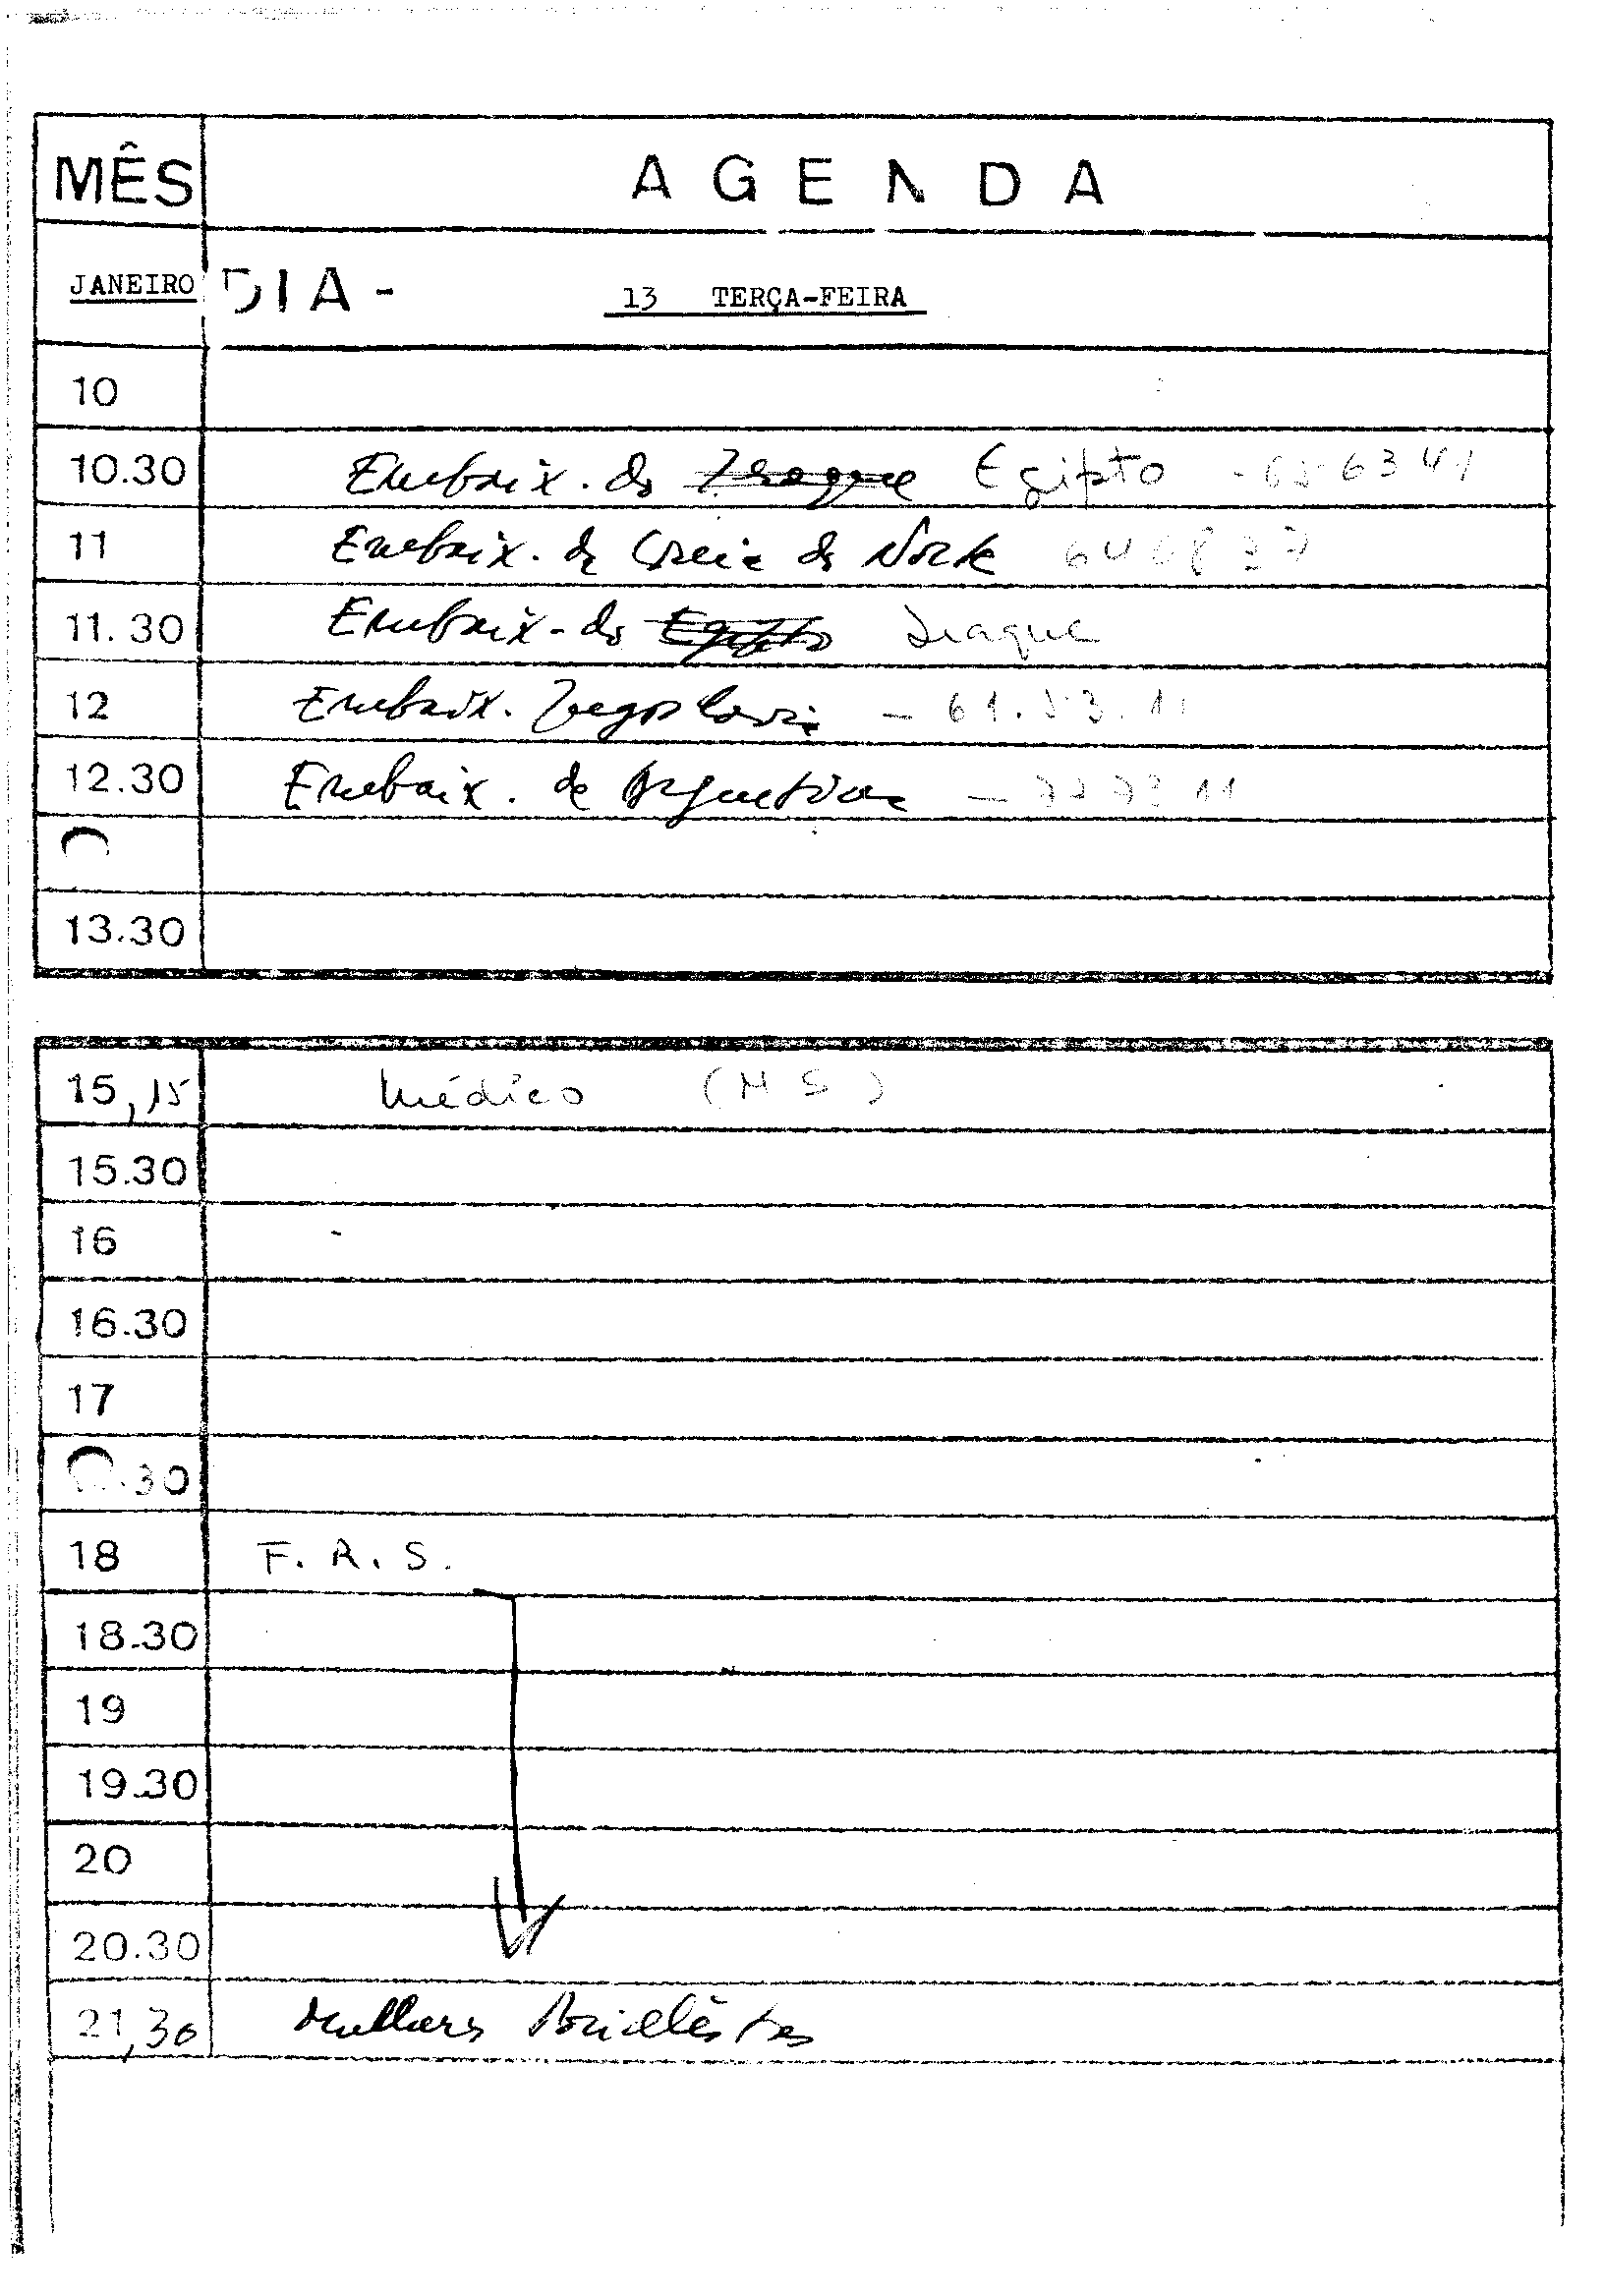 MÊS AGENDA
JANEIRO DIA - 13 TERÇA-FEIRA
10
10.30 Embaix. do Iraque Egipto - 656341
11 Embaix. da Coreia do Norte
11.30 Embaix. do Egipto Iraque
12 Embaix. Jugoslavia - 61.53.11
12.30 Embaix. da Argentina - 777311
13.30
15,15 Médico (MS)
15.30
16
16.30
17
.30
18 F.A.S.
18.30
19
19.30
20
20.30
21,30 Mulheres Socialistas